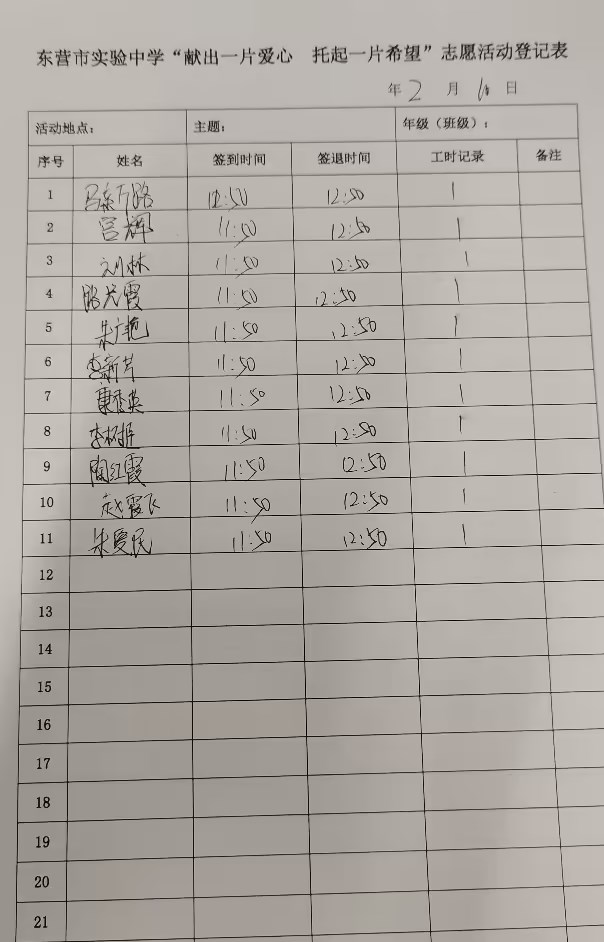 东营市实验中学“献出一片爱心 托起一片希望”志愿活动登记表
年 2 月 10 日
活动地点: 主题: 年级（班级）:
序号 姓名 签到时间 签退时间 工时记录 备注
1 12:50 12:50 1
2 宫辉 11:50 12:50 1
3 刘林 11:50 12:50 1
4 11:50 12:50 1
5 朱广艳 11:50 12:50 1
6 李新芹 11:50 12:50 1
7 康秀英 11:50 12:50 1
8 11:50 12:50 1
9 陶红霞 11:50 12:50 1
10 赵霞飞 11:50 12:50 1
11 朱爱民 11:50 12:50 1
12
13
14
15
16
17
18
19
20
21